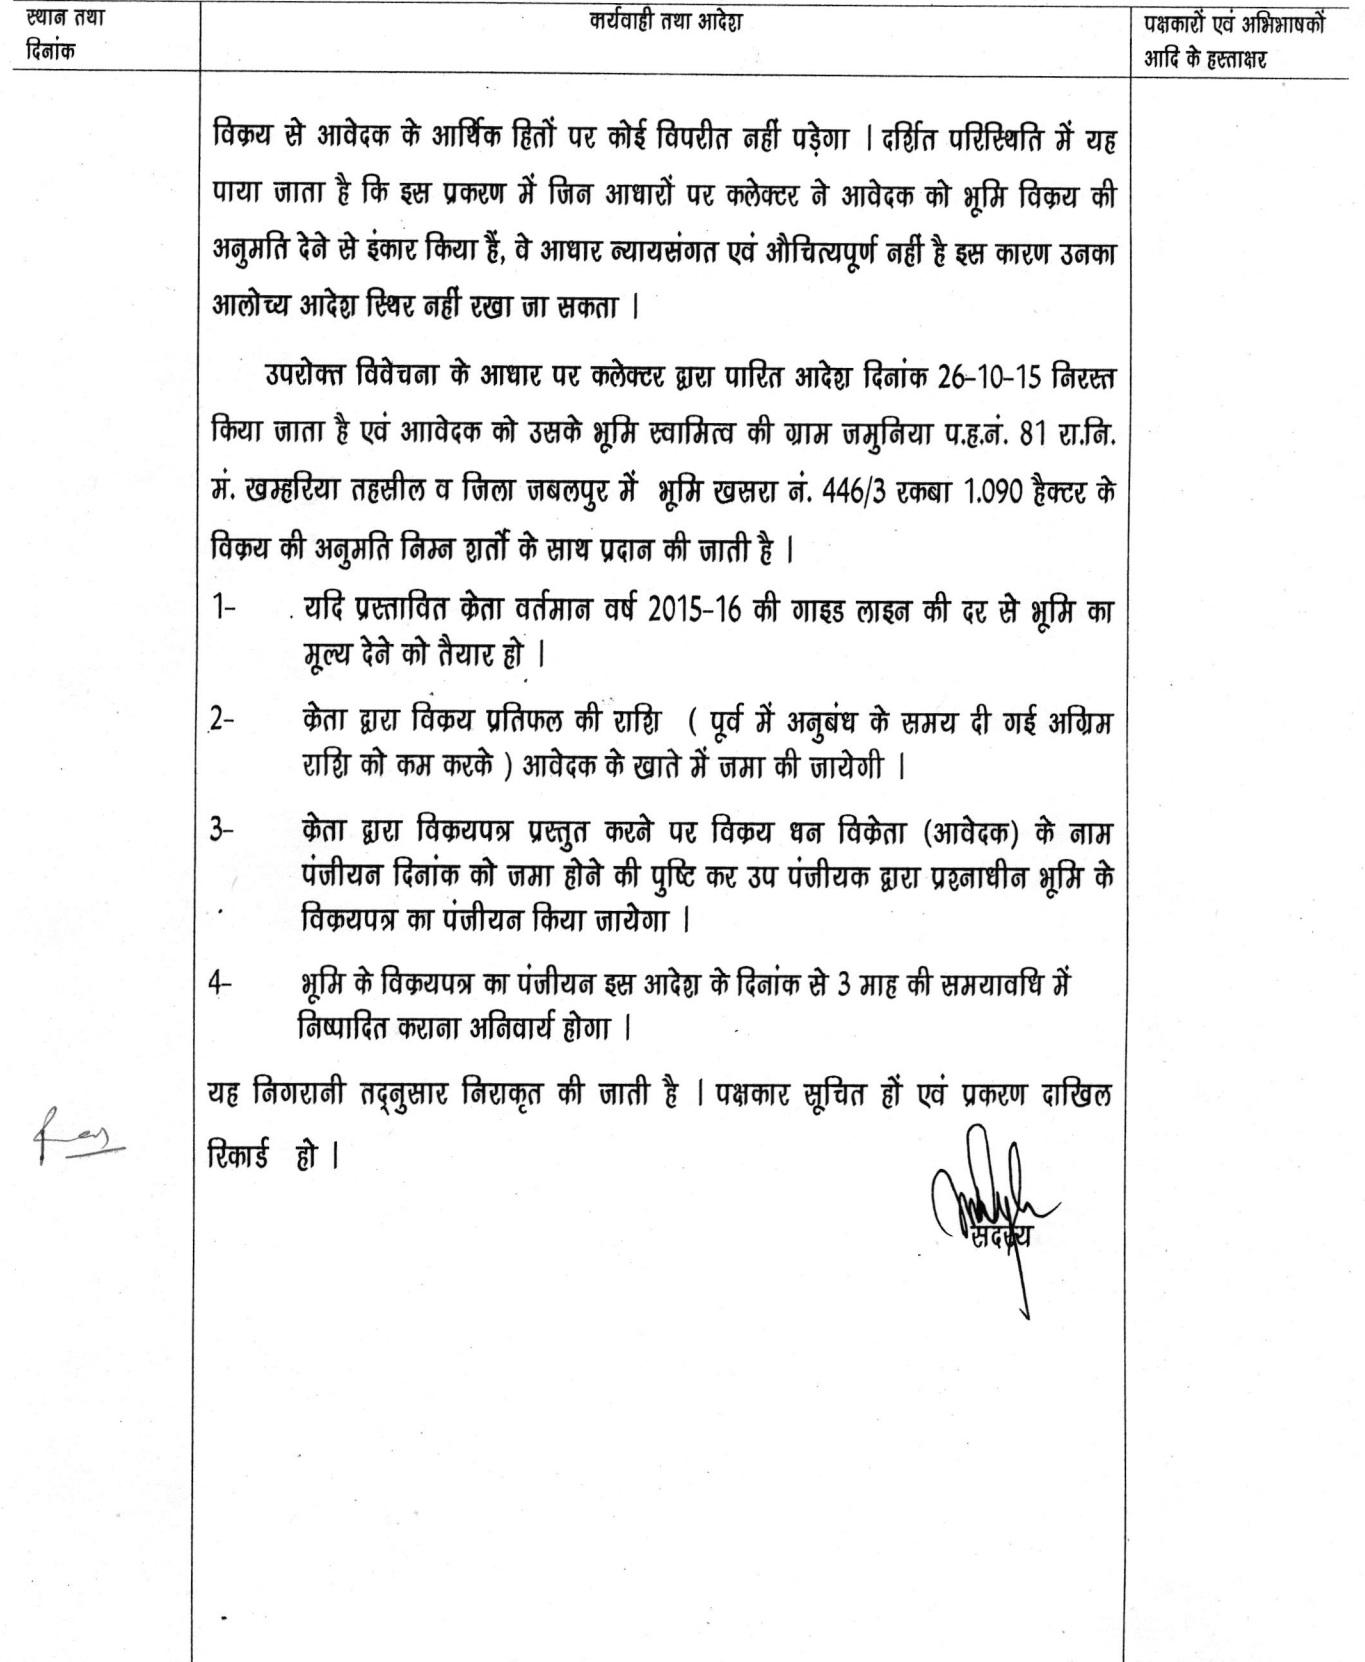 स्थान तथा
दिनांक
कार्यवाही तथा आदेश
पक्षकारों एवं अभिभाषकों
आदि के हस्ताक्षर
विक्रय से आवेदक के आर्थिक हितों पर कोई विपरीत नहीं पड़ेगा । दर्शित परिस्थिति में यह
पाया जाता है कि इस प्रकरण में जिन आधारों पर कलेक्टर ने आवेदक को भूमि विक्रय की
अनुमति देने से इंकार किया हैं, वे आधार न्यायसंगत एवं औचित्यपूर्ण नहीं है इस कारण उनका
आलोच्य आदेश स्थिर नहीं रखा जा सकता ।
उपरोक्त विवेचना के आधार पर कलेक्टर द्वारा पारित आदेश दिनांक 26-10-15 निरस्त
किया जाता है एवं आावेदक को उसके भूमि स्वामित्व की ग्राम जमुनिया प.ह.नं. 81 रा.नि.
मं. खम्हरिया तहसील व जिला जबलपुर में भूमि खसरा नं. 446/3 रकबा 1.090 हैक्टर के
विक्रय की अनुमति निम्न शर्तों के साथ प्रदान की जाती है ।
1- यदि प्रस्तावित क्रेता वर्तमान वर्ष 2015-16 की गाइड लाइन की दर से भूमि का
मूल्य देने को तैयार हो ।
2- क्रेता द्वारा विक्रय प्रतिफल की राशि ( पूर्व में अनुबंध के समय दी गई अग्रिम
राशि को कम करके ) आवेदक के खाते में जमा की जायेगी ।
3- क्रेता द्वारा विक्रयपत्र प्रस्तुत करने पर विक्रय धन विक्रेता (आवेदक) के नाम
पंजीयन दिनांक को जमा होने की पुष्टि कर उप पंजीयक द्वारा प्रश्नाधीन भूमि के
विक्रयपत्र का पंजीयन किया जायेगा ।
4- भूमि के विक्रयपत्र का पंजीयन इस आदेश के दिनांक से 3 माह की समयावधि में
निष्पादित कराना अनिवार्य होगा ।
यह निगरानी तद्नुसार निराकृत की जाती है । पक्षकार सूचित हों एवं प्रकरण दाखिल
रिकार्ड हो ।
सदस्य